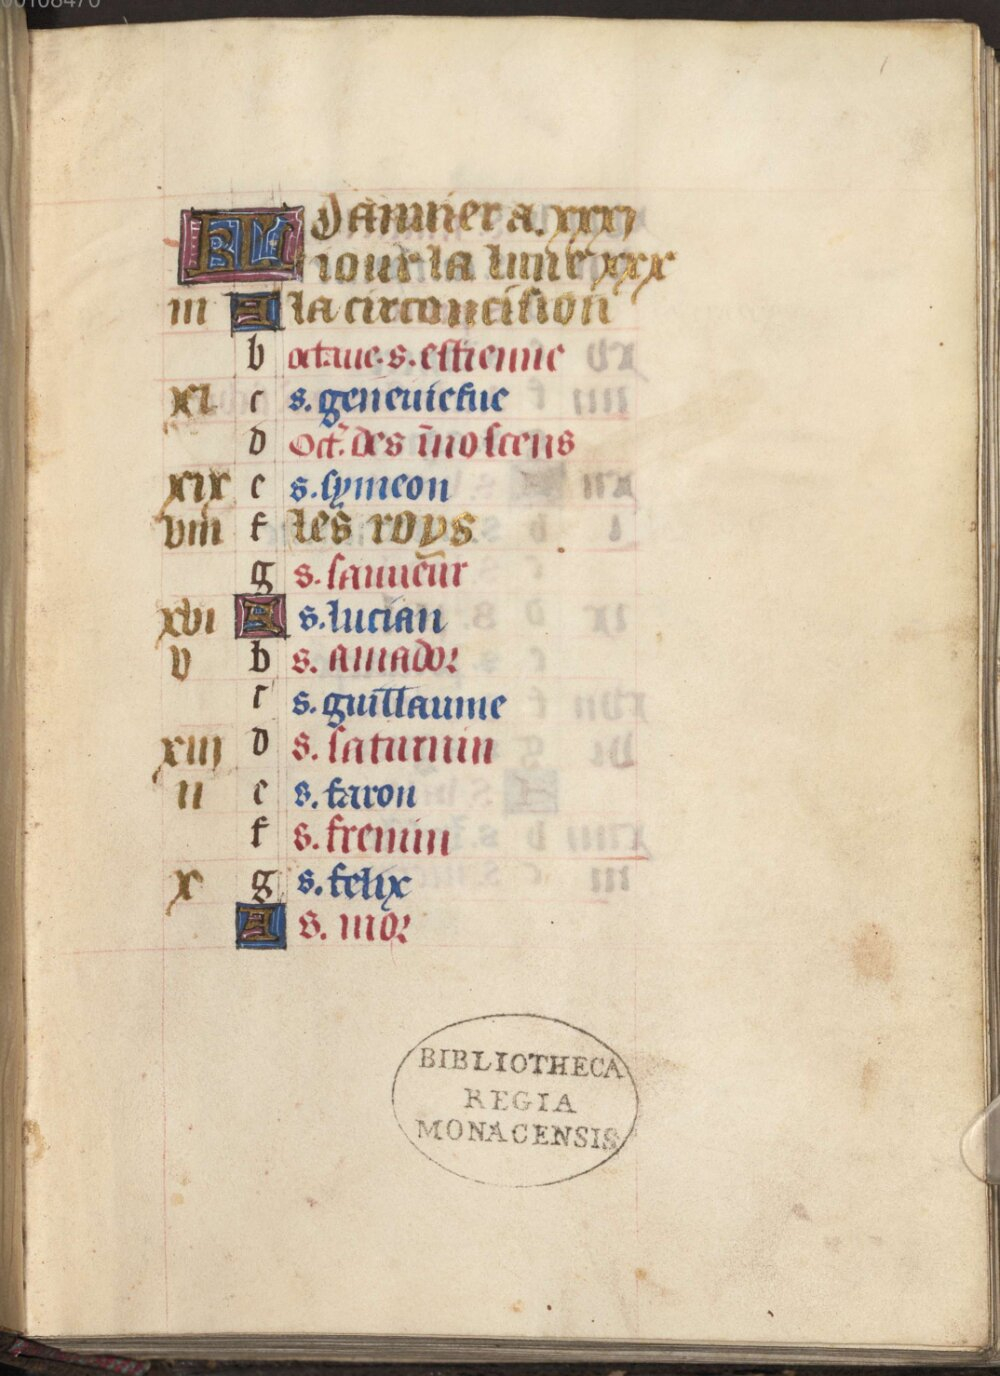 00108470
KL Januier a. xxxi
iour la lune xxx
iii A la circoncision
b octaue. s. estienne
xi c s. geneuiefue
d Oct. des īnoscens
xix e s. symeon
viii f les roys
g s. sauueur
xvi A s. lucian
v b s. amador
c s. guillaume
xiii d s. saturnin
ii e s. faron
f s. fremin
x g s. felix
A s. mor
BIBLIOTHECA
REGIA
MONACENSIS